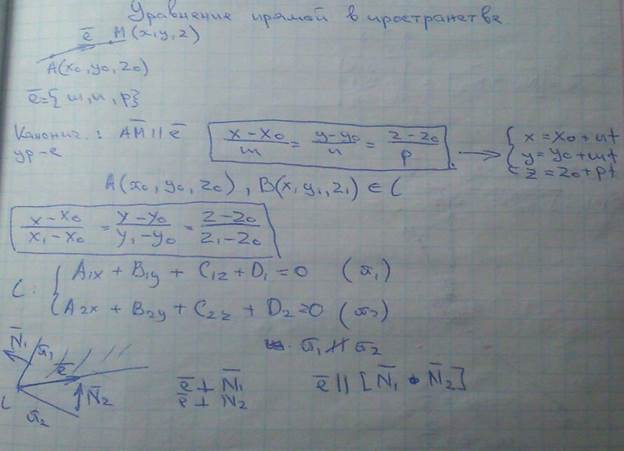 Уравнение прямой в пространстве
ē M(x,y,z)
A(x₀,y₀,z₀)
ē={m,n,p}
Канонич. ур-е: AM̄ || ē (x-x₀)/m = (y-y₀)/n = (z-z₀)/p → { x=x₀+nt
y=y₀+mt
z=z₀+pt
A(x₀,y₀,z₀), B(x₁,y₁,z₁) ∈ L
(x-x₀)/(x₁-x₀) = (y-y₀)/(y₁-y₀) = (z-z₀)/(z₁-z₀)
L: { A₁x + B₁y + C₁z + D₁ = 0 (π₁)
A₂x + B₂y + C₂z + D₂ = 0 (π₂)
π₁ ∦ π₂
N̄₁ π₁ ē
L N̄₂
π₂
ē ⊥ N̄₁
ē ⊥ N₂
ē || [N̄₁ • N̄₂]